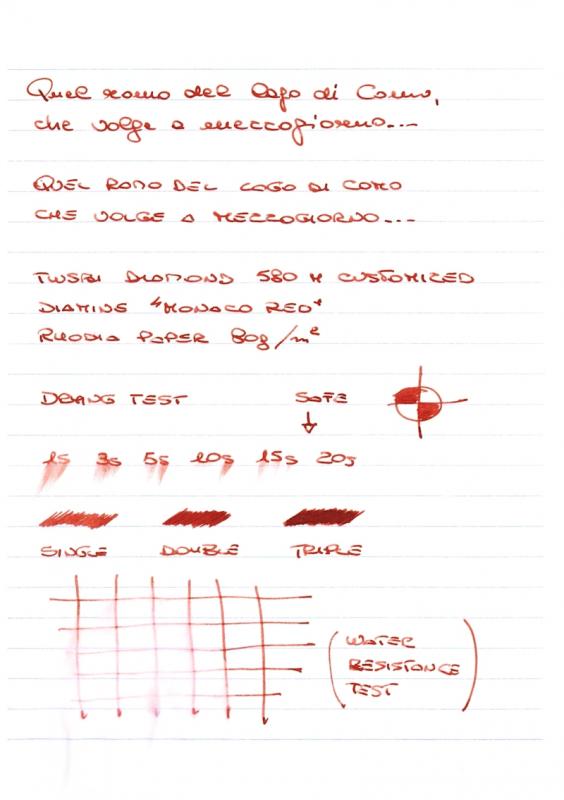 Quel ramo del lago di Como,
che volge a mezzogiorno...
QUEL RAMO DEL LAGO DI COMO
CHE VOLGE A MEZZOGIORNO...
TWSBI DIAMOND 580 M CUSTOMIZED
DIAMINE "MONACO RED"
RHODIA PAPER 80g/m²
DRYING TEST SAFE
1s 3s 5s 10s 15s 20s
SINGLE DOUBLE TRIPLE
(WATER
RESISTANCE
TEST)